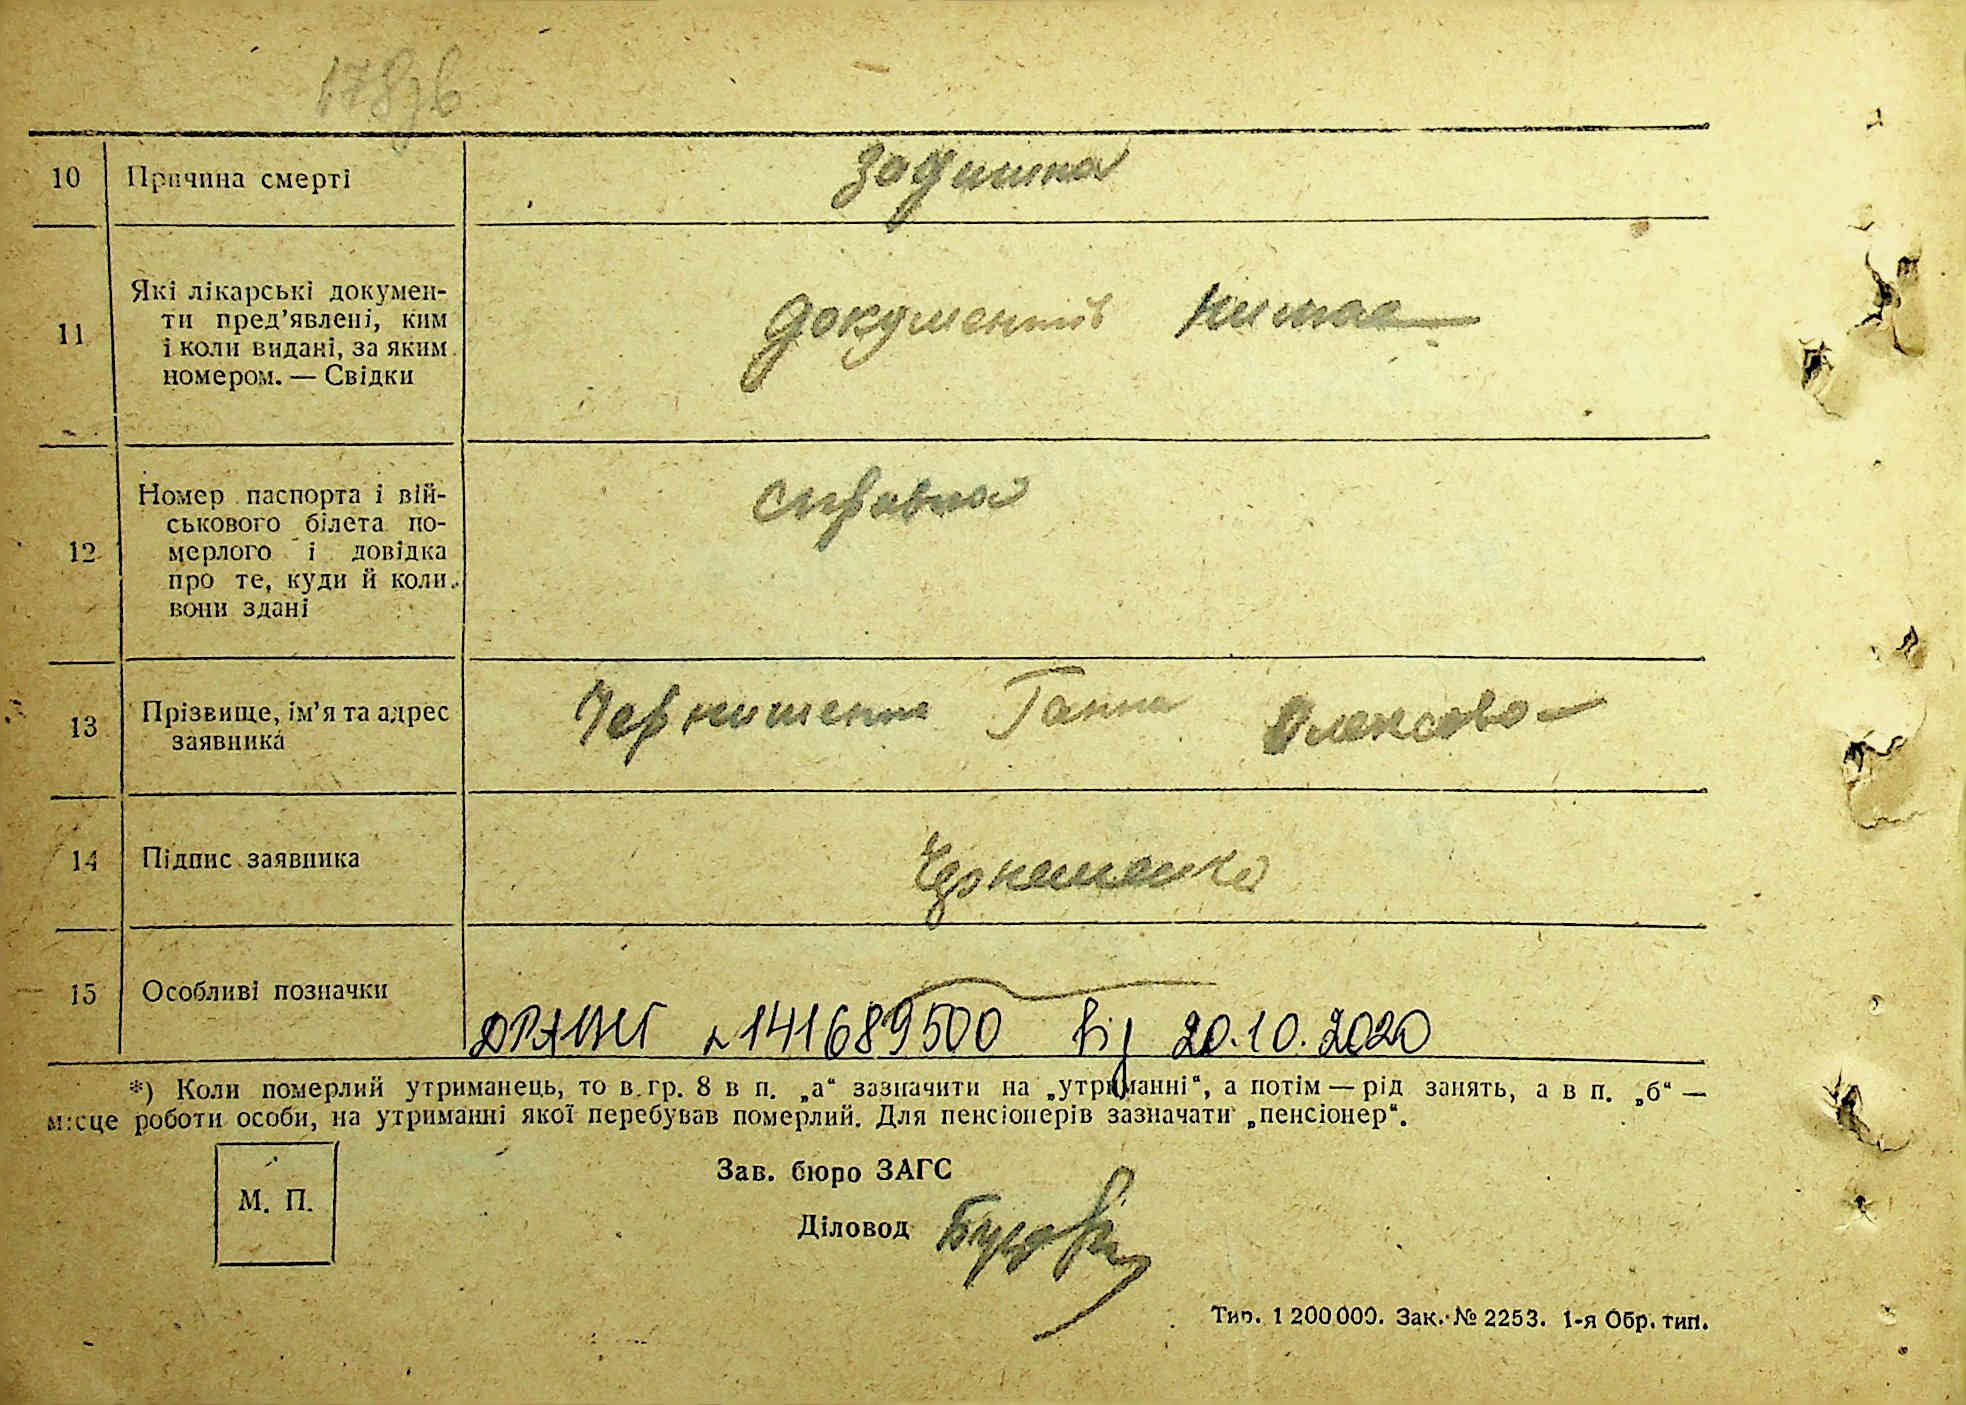 178зв
10 Причина смерті задишка
11 Які лікарські докумен-
ти пред’явлені, ким
і коли видані, за яким
номером. — Свідки
документів нимає
12 Номер паспорта і вій-
ськового білета по-
мерлого і довідка
про те, куди й коли
вони здані
справка
13 Прізвище, ім’я та адрес
заявника
Чернишенко Ганна Олексієв
14 Підпис заявника Чернешенко
15 Особливі позначки
ДРАЦСГ № 141689500 від 20.10.2020
*) Коли померлий утриманець, то в гр. 8 в п. „а“ зазначити на „утриманні“, а потім — рід занять, а в п. „б“ —
місце роботи особи, на утриманні якої перебував померлий. Для пенсіонерів зазначати „пенсіонер“.
М. П.
Зав. бюро ЗАГС
Діловод
Тип. 1 200 000. Зак. № 2253. 1-я Обр. тип.